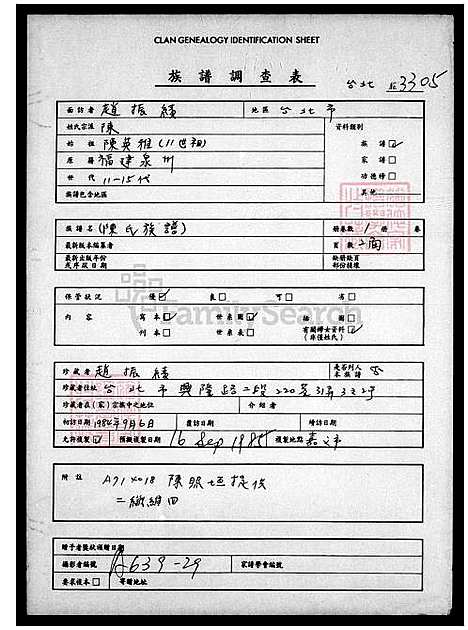 CLAN GENEALOGY IDENTIFICATION SHEET
族譜調查表
台北 3305
面訪者 趙振績 地區 台北市
姓氏宗派 陳 資料類別
始祖 陳英雅(11世祖) 族譜 ☑
原籍 福建泉州 家譜 □
世代 11-15代 功德榜 □
族譜包含地區 其他
族譜名 (陳氏族譜) 冊卷數 1 冊 卷
最新版本編纂者 頁數
最新出版年份 缺冊缺頁
或序跋日期 部份損壞
保管狀況 優☑ 良□ 可□ 劣□
內容 寫本☑ 世系圖☑ 插圖□
刊本□ 世系表☑ 有關婦女資料☑
(非僅姓氏)
FamilySearch
珍藏者 趙振績 是否列入本族譜 否
珍藏者住址 台北市興隆路二段220巷
珍藏者在(家)宗族中之地位 介紹者
初訪日期 1984年9月6日 覆訪日期 續訪日期
允許複製☑ 預擬複製日期 16 Sep 1985 複製地點 嘉義市
附註 A914018 陳照
贈予者獎狀頒贈日期
攝影者編號 A639-29 家譜學會編號
要求複本□ 寄贈地址